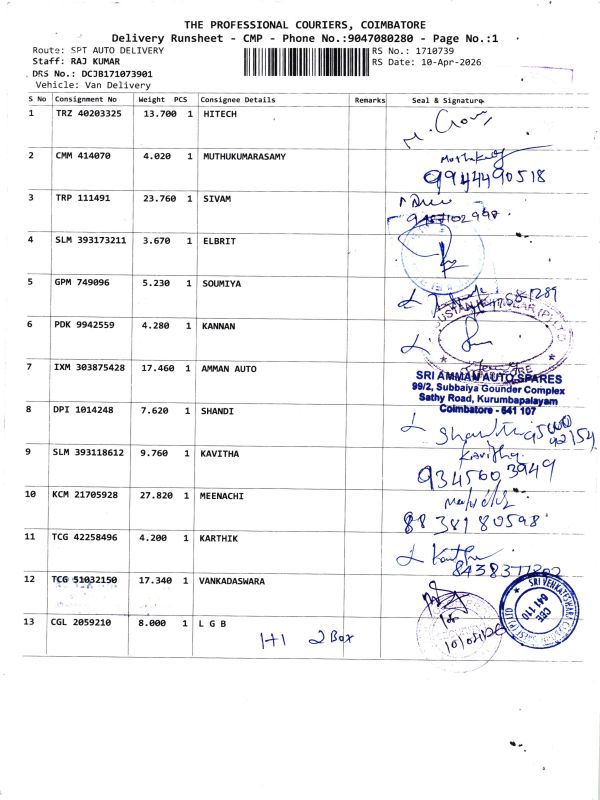 THE PROFESSIONAL COURIERS, COIMBATORE
Delivery Runsheet - CMP - Phone No.:9047080280 - Page No.:1
Route: SPT AUTO DELIVERY
RS No.: 1710739
Staff: RAJ KUMAR
RS Date: 10-Apr-2026
DRS No.: DCJB171073901
Vehicle: Van Delivery
S No Consignment No Weight PCS Consignee Details Remarks Seal & Signature
1 TRZ 40203325 13.700 1 HITECH
2 CMM 414070 4.020 1 MUTHUKUMARASAMY
9944490518
3 TRP 111491 23.760 1 SIVAM
4 SLM 393173211 3.670 1 ELBRIT
5 GPM 749096 5.230 1 SOUMIYA
6 PDK 9942559 4.280 1 KANNAN
7 IXM 303875428 17.460 1 AMMAN AUTO
SRI AMMAN AUTO SPARES
99/2, Subbaiya Gounder Complex
Sathy Road, Kurumbapalayam
Coimbatore - 641 107
8 DPI 1014248 7.620 1 SHANDI
9 SLM 393118612 9.760 1 KAVITHA
Kavitha
9345603949
10 KCM 21705928 27.820 1 MEENACHI
8838180598
11 TCG 42258496 4.200 1 KARTHIK
12 TCG 51032150 17.340 1 VANKADASWARA
SRI VENKATESHWARA
CBE
641 110
13 CGL 2059210 8.000 1 L G B
1+1 2 Box